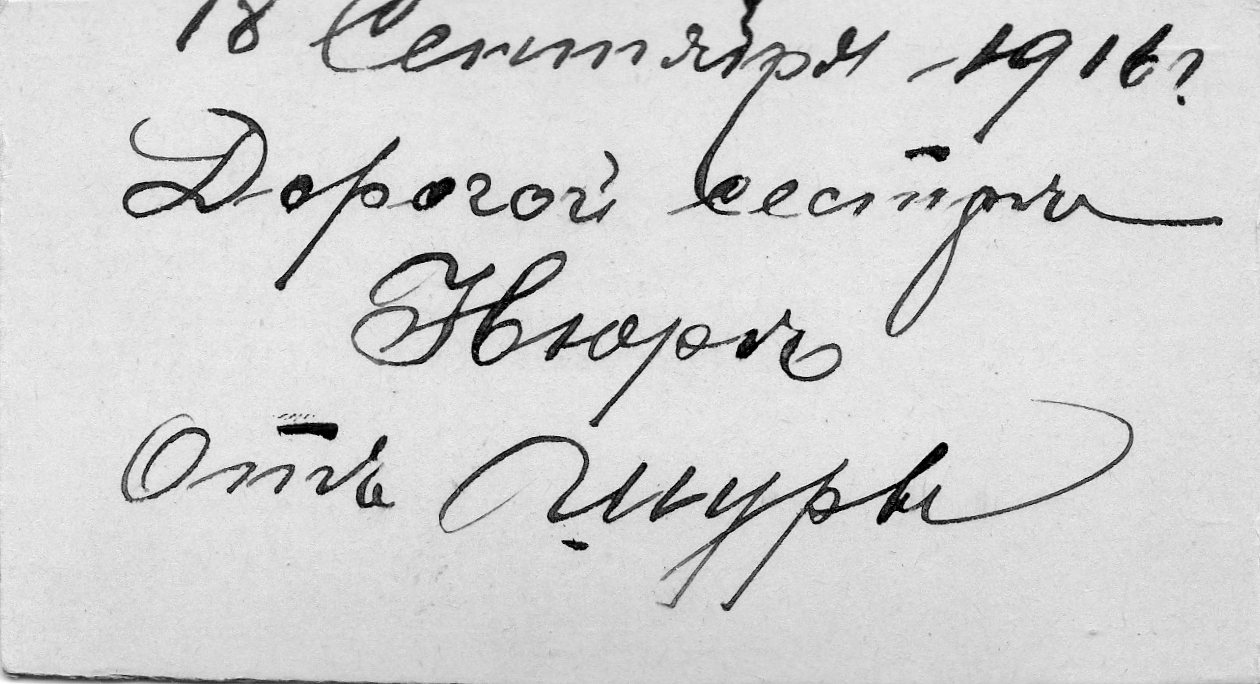 18 Сентября - 1916 г
Дорогой сестрѣ
Нюрѣ
Отъ Шуры